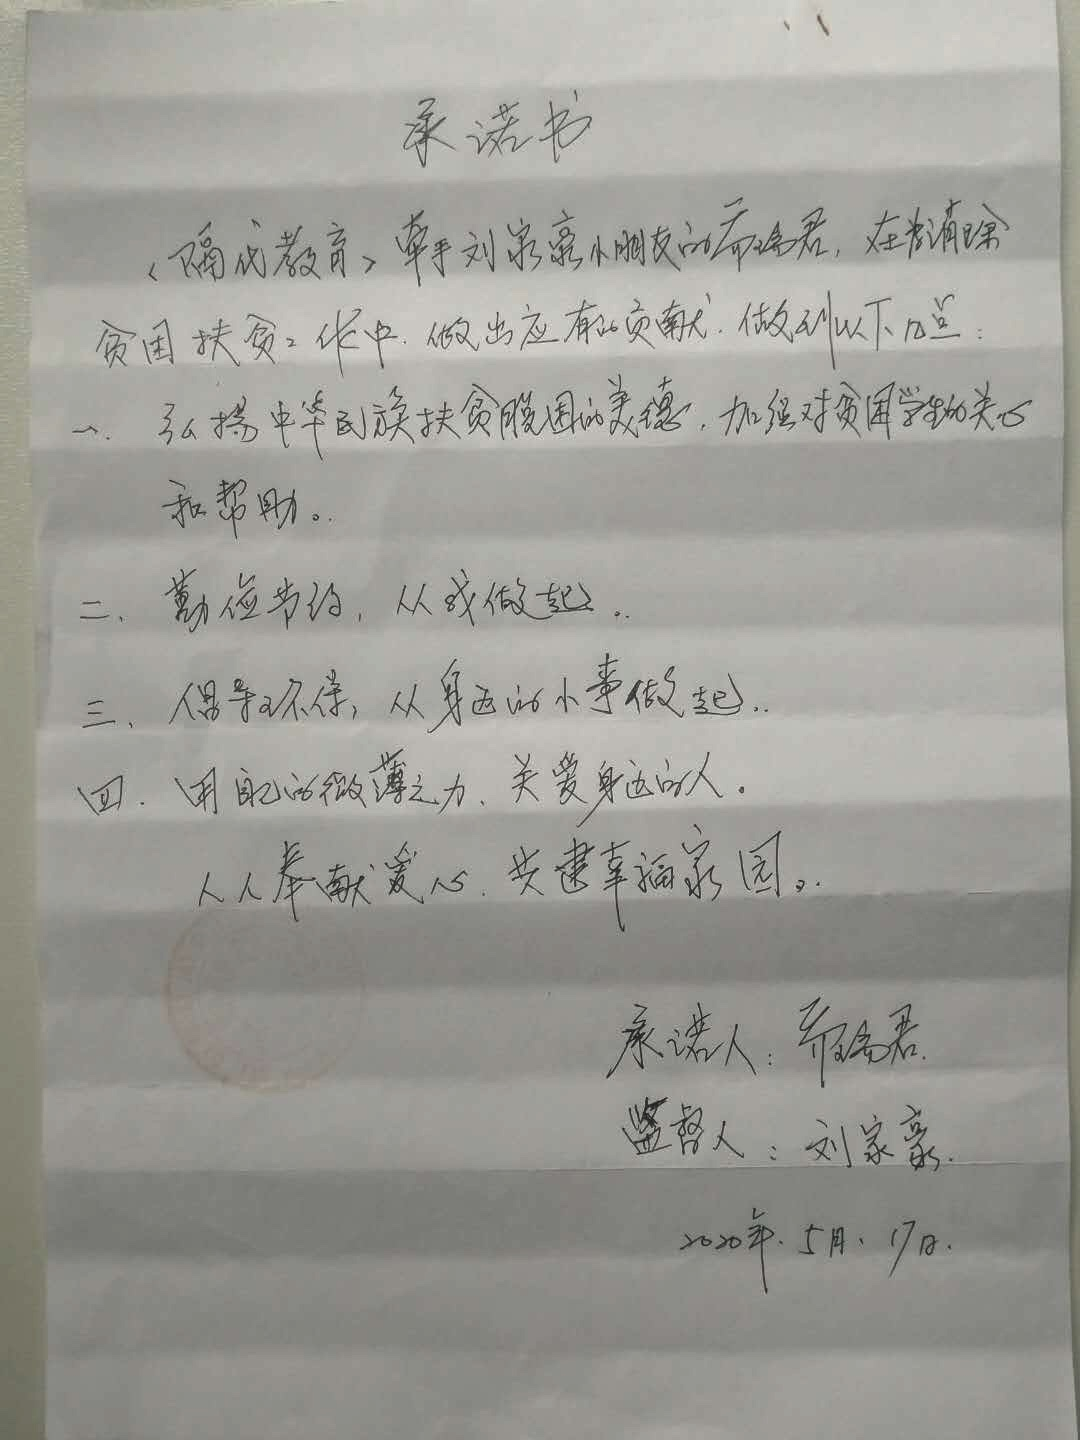 承诺书
《隔代教育》牵手刘家豪小朋友的乔瑞君，在消除
贫困扶贫工作中.做出应有的贡献.做到以下几点：
一、弘扬中华民族扶贫脱困的美德，加强对贫困学生的关心
和帮助。
二、勤俭节约，从我做起。
三、倡导环保，从身边的小事做起。
四、用自己的微薄之力、关爱身边的人。
人人奉献爱心、共建幸福家园。
承诺人：乔瑞君.
监督人：刘家豪.
2020年.5月、17日.